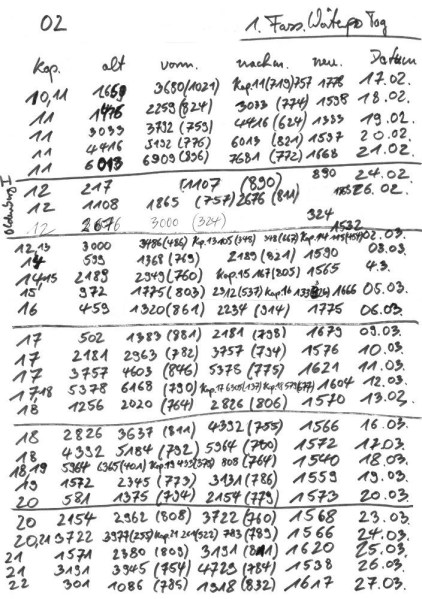 02 1. Fass. Wörter pro Tag
Kap. alt vorm. nachm. neu. Datum
10,11 1669 3680(1021) Kap.11(719)757 1778 17.02.
11 1476 2259 (824) 3033 (774) 1598 18.02.
11 3033 3792 (759) 4416 (624) 1383 19.02.
11 4416 5192 (776) 6013 (821) 1597 20.02.
11 6013 6909 (896) 7681 (772) 1668 21.02.
Oldenburg I
12 217 (1107 (890) 890 24.02
12 1108 1865 (757) 2676 (811) 26.02.
12 2676 3000 (324) 324
1532
12,13 3000 3486(486) Kap.13 105 (345) 02.03.
14 599 1368 (769) 2189 (821) 1590 03.03.
14,15 2189 2949 (760) Kap.15 167 (205) 1565 4.3.
15 972 1775 (803) 2312 (537) Kap.16 1666 05.03.
16 459 1320 (861) 2234 (914) 1775 06.03.
17 502 1383 (881) 2181 (798) 1679 09.03.
17 2181 2963 (782) 3757 (794) 1576 10.03.
17 3757 4603 (846) 5378 (775) 1621 11.03.
17,18 5378 6168 (790) Kap.17 6305 (137) Kap.18 (677) 1604 12.03.
18 1256 2020 (764) 2826 (806) 1570 13.02.
18 2826 3637 (811) 4392 (755) 1566 16.03.
18 4392 5184 (792) 5964 (780) 1572 17.03.
18,19 5964 6365 (401) Kap.19 808 (764) 1540 18.03.
19 1572 2345 (773) 3131 (786) 1559 19.03.
20 581 1375 (794) 2154 (779) 1573 20.03.
20 2154 2962 (808) 3722 (760) 1568 23.03.
20,21 3722 3977 (255) Kap.21 (522) 783 (789) 1566 24.03.
21 1571 2380 (809) 3191 (811) 1620 25.03.
21 3191 3945 (754) 4729 (784) 1538 26.03.
22 301 1086 (785) 1918 (832) 1617 27.03.